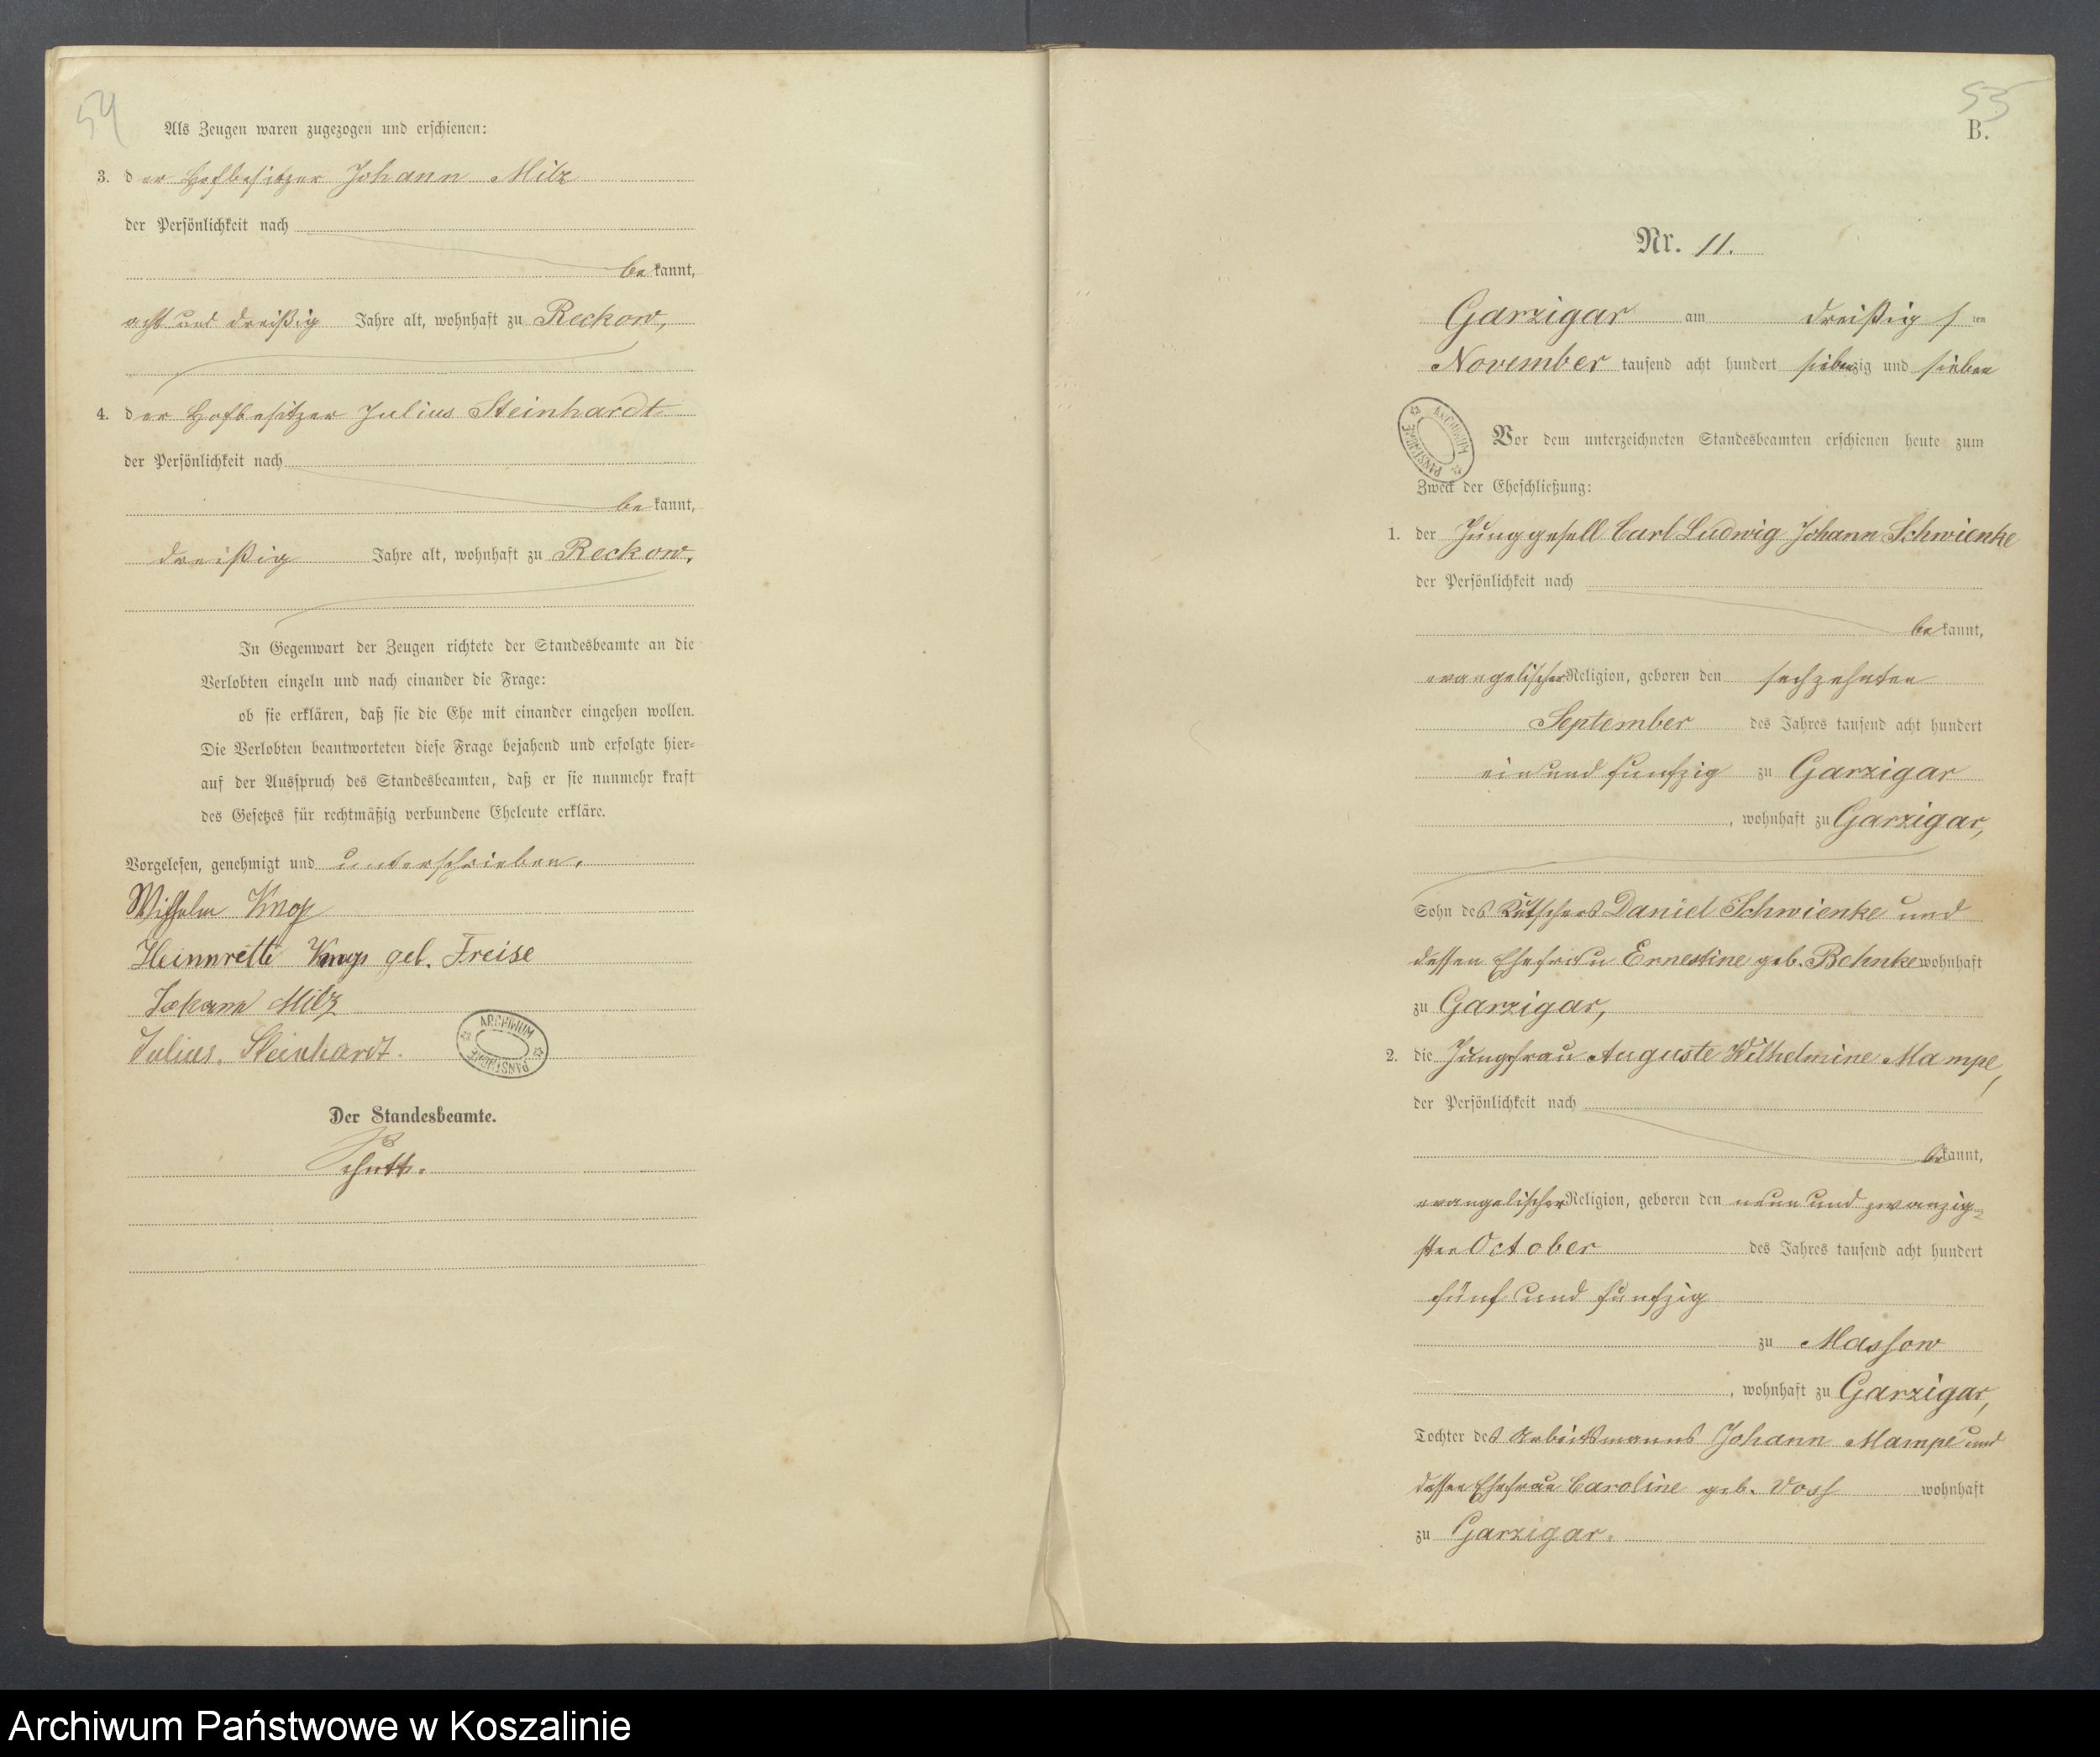 54
Als Zeugen waren zugezogen und erschienen:
3. der Hofbesitzer Johann Milz
der Persönlichkeit nach
bekannt,
acht und dreißig Jahre alt, wohnhaft zu Reckow,
4. der Hofbesitzer Julius Steinhardt
der Persönlichkeit nach
bekannt,
dreißig Jahre alt, wohnhaft zu Reckow.
In Gegenwart der Zeugen richtete der Standesbeamte an die
Verlobten einzeln und nach einander die Frage:
ob sie erklären, daß sie die Ehe mit einander eingehen wollen.
Die Verlobten beantworteten diese Frage bejahend und erfolgte hier=
auf der Ausspruch des Standesbeamten, daß er sie nunmehr kraft
des Gesetzes für rechtmäßig verbundene Eheleute erkläre.
Vorgelesen, genehmigt und unterschrieben.
Wilhelm Knop
Heinnrette Knop geb. Freise
Johann Milz
Julius Steinhardt.
ARCHIWUM PAŃSTWOWE
Der Standesbeamte.
55
B.
Nr. 11.
Garzigar am dreißigsten
November tausend acht hundert siebenzig und sieben
ARCHIWUM PAŃSTWOWE
Vor dem unterzeichneten Standesbeamten erschienen heute zum
Zweck der Eheschließung:
1. der Junggesell Carl Ludwig Johann Schwienke
der Persönlichkeit nach
bekannt,
evangelischer Religion, geboren den sechzehnten
September des Jahres tausend acht hundert
ein und funfzig zu Garzigar
, wohnhaft zu Garzigar,
Sohn des Kutschers Daniel Schwienke und
dessen Ehefrau Ernestine geb. Behnke wohnhaft
zu Garzigar,
2. die Jungfrau Auguste Wilhelmine Mampe,
der Persönlichkeit nach
bekannt,
evangelischer Religion, geboren den neun und zwanzig=
sten October des Jahres tausend acht hundert
fünf und funfzig
zu Massow
, wohnhaft zu Garzigar,
Tochter des Arbeitsmanns Johann Mampe und
dessen Ehefrau Caroline geb. Voss wohnhaft
zu Garzigar.
Archiwum Państwowe w Koszalinie